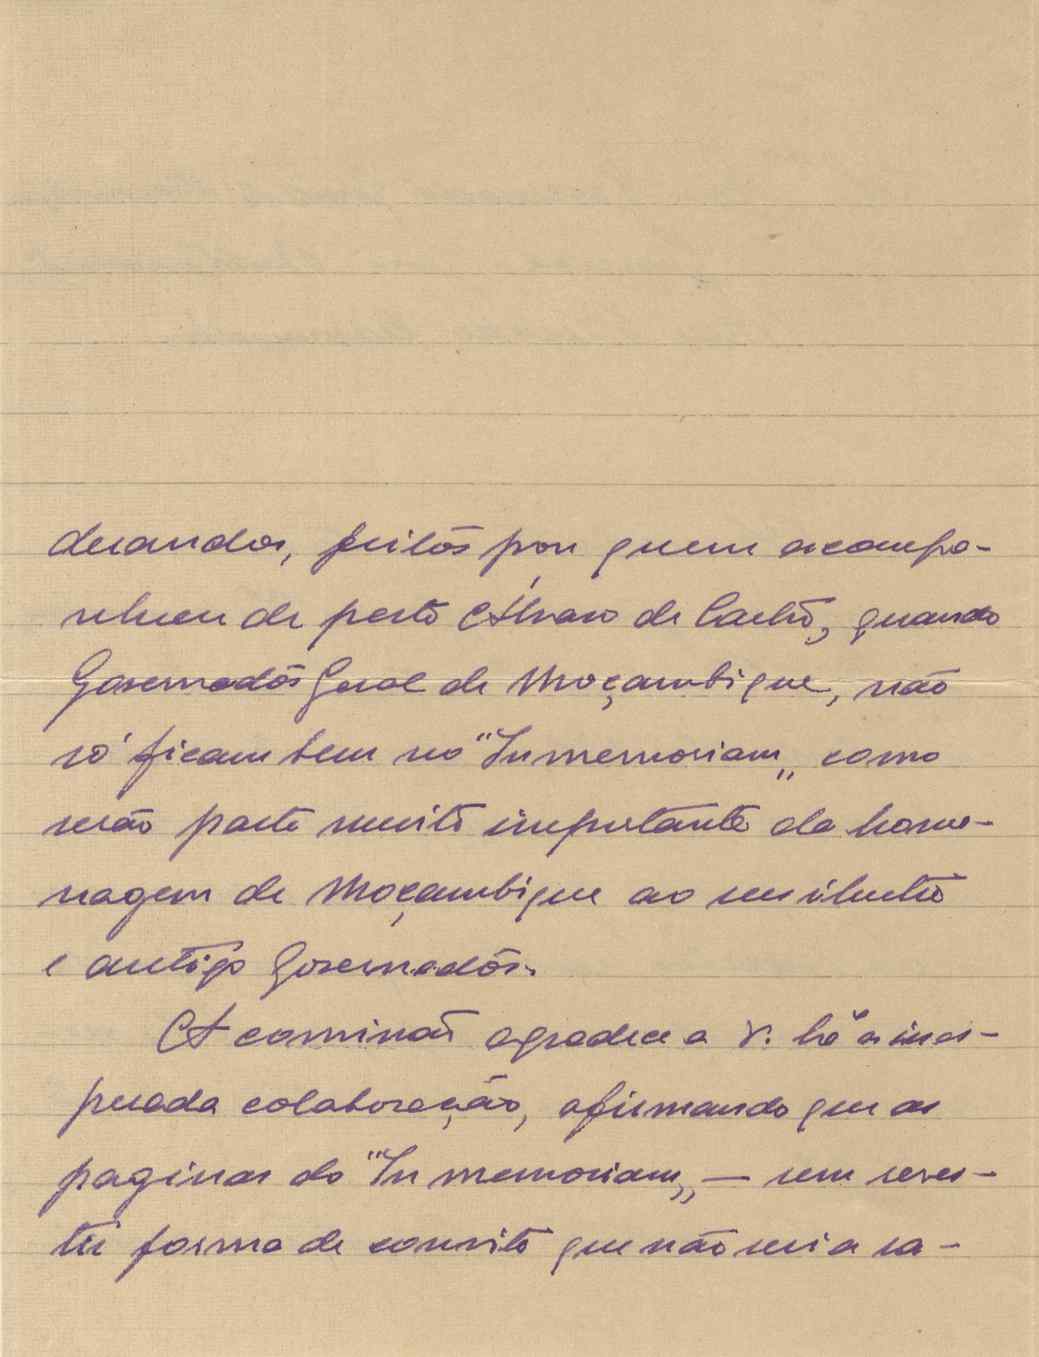 derandos, feitos por quem acompa-
nhou de perto Alvaro de Castro, quando
Governador Geral de Moçambique, não
só ficam bem no "In memoriam„ como
serão parte muito importante da home-
nagem de Moçambique ao seu ilustre
e antigo Governador.
A comissão agradece a V. a ines-
perada colaboração, afirmando que as
paginas do "In memoriam„ — sem reves-
tir forma de convite que não seria ra-